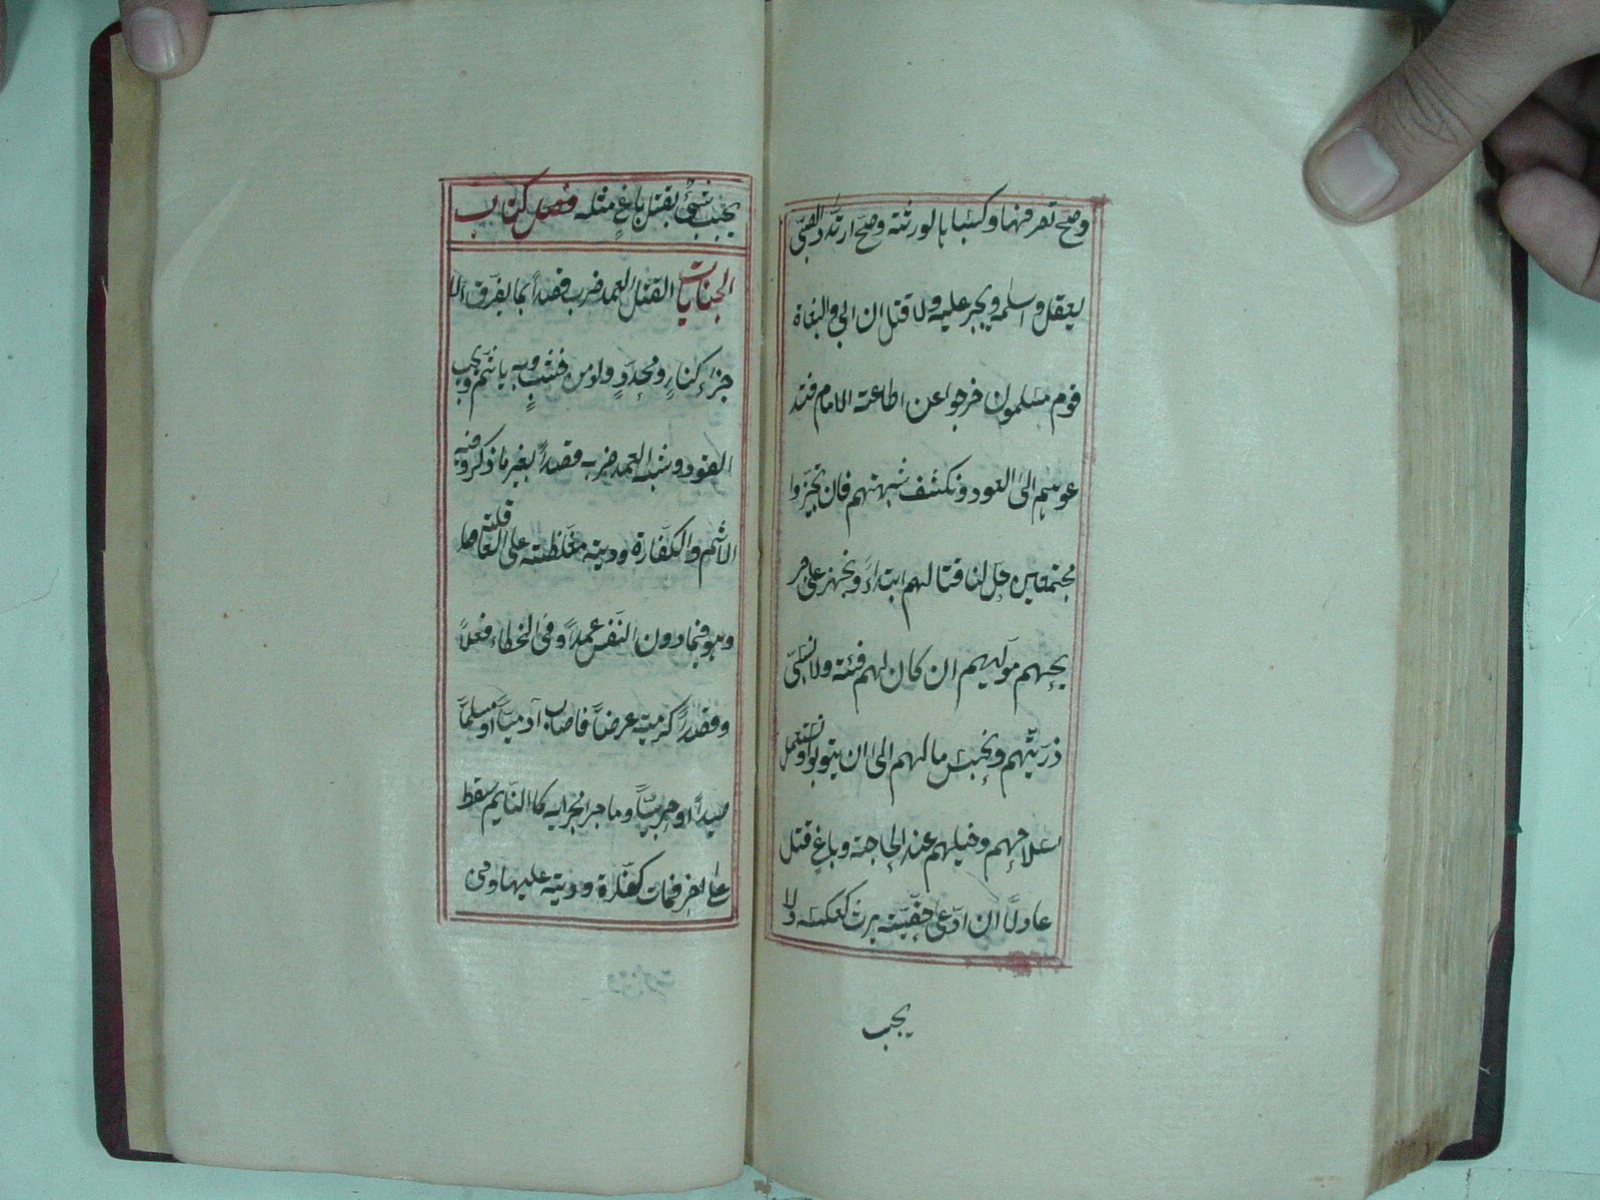 وصحّ تصرفنها وكسبا بالورثته وصحّ ارتدّ الصبّى
يعقل واسلمه ويجبر عليه ولا قتل ان ابى والبغاة
قوم مسلمون خرجوا عن اطاعته الامام فتد
عوهم الى العود ونكشف شبهتهم فان تحيّزوا
مجتمعين حلّ لنا قتالهم ابتداءً ونجهز على جر
يحهم موليهم ان كان لهم فئة ولا نسبى
ذرّيتهم ونحبس مالهم الى ان يتوبوا ونستعمل
سلاحهم وخيلهم عند الحاجته وباغٍ قتل
عادلاً ان ادّعى حقيّته يرث كعكسه ولا
يجب
يجب شىٌ بقتل باغٍ مثله فصل كتاب
الجنايات القتل العمد ضرب قصداً بما يفرّق الا
جزاء كنارٍ ومحدّدٍ ولو من خشبٍ وبه ياثم ويجب
القود وشبه العمد ضربه قصداً بغير ما ذكر وفيه
الاثم والكفّارة وديته مغلّظته على العاقلته
وهو فيما دون النفس عمداً وفى الخطاء فعلاً
وقصداً كرميته عرضاً فاصاب آدميّاً او مسلماً
صيداً او حربيّاً وما جرا مجرايه كا النايم سقط
على اخر فمات كفّارة وديته عليها وفى